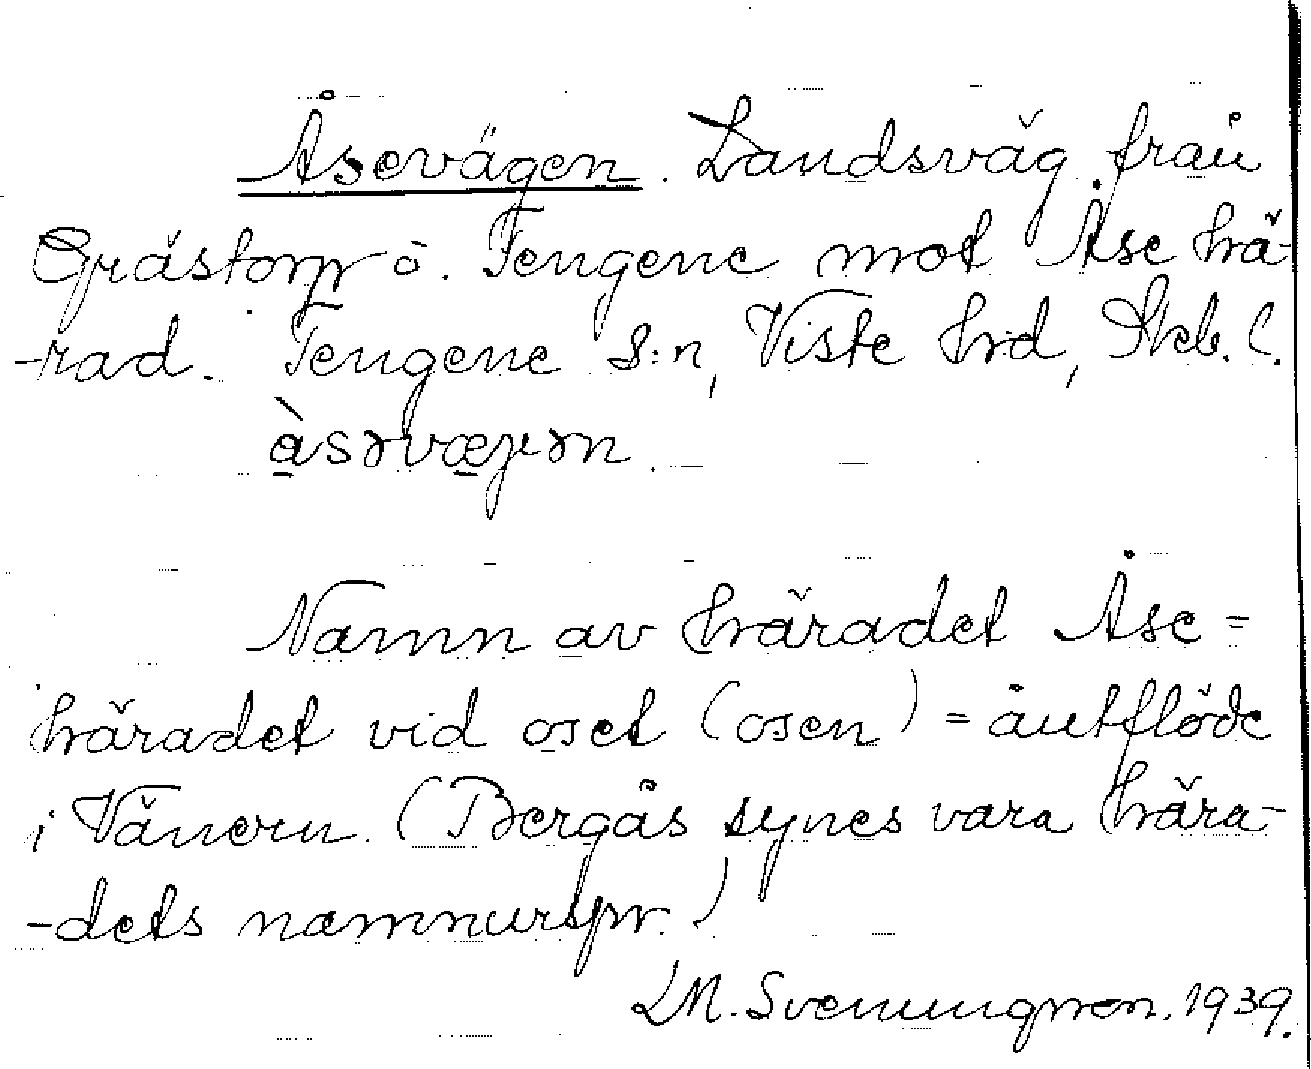 Åsevägen. Landsväg från
Grästorp ö. Tengene mot Åse hä-
-rad. Tengene s:n, Viste hrd, Skb. l.
àsəvæjən.
Namn av häradet Åse =
häradet vid oset (osen) = åutflöde
i Vänern. (Bergås synes vara hära-
-dets namnurspr.)
LM. Svenungsson. 1939.